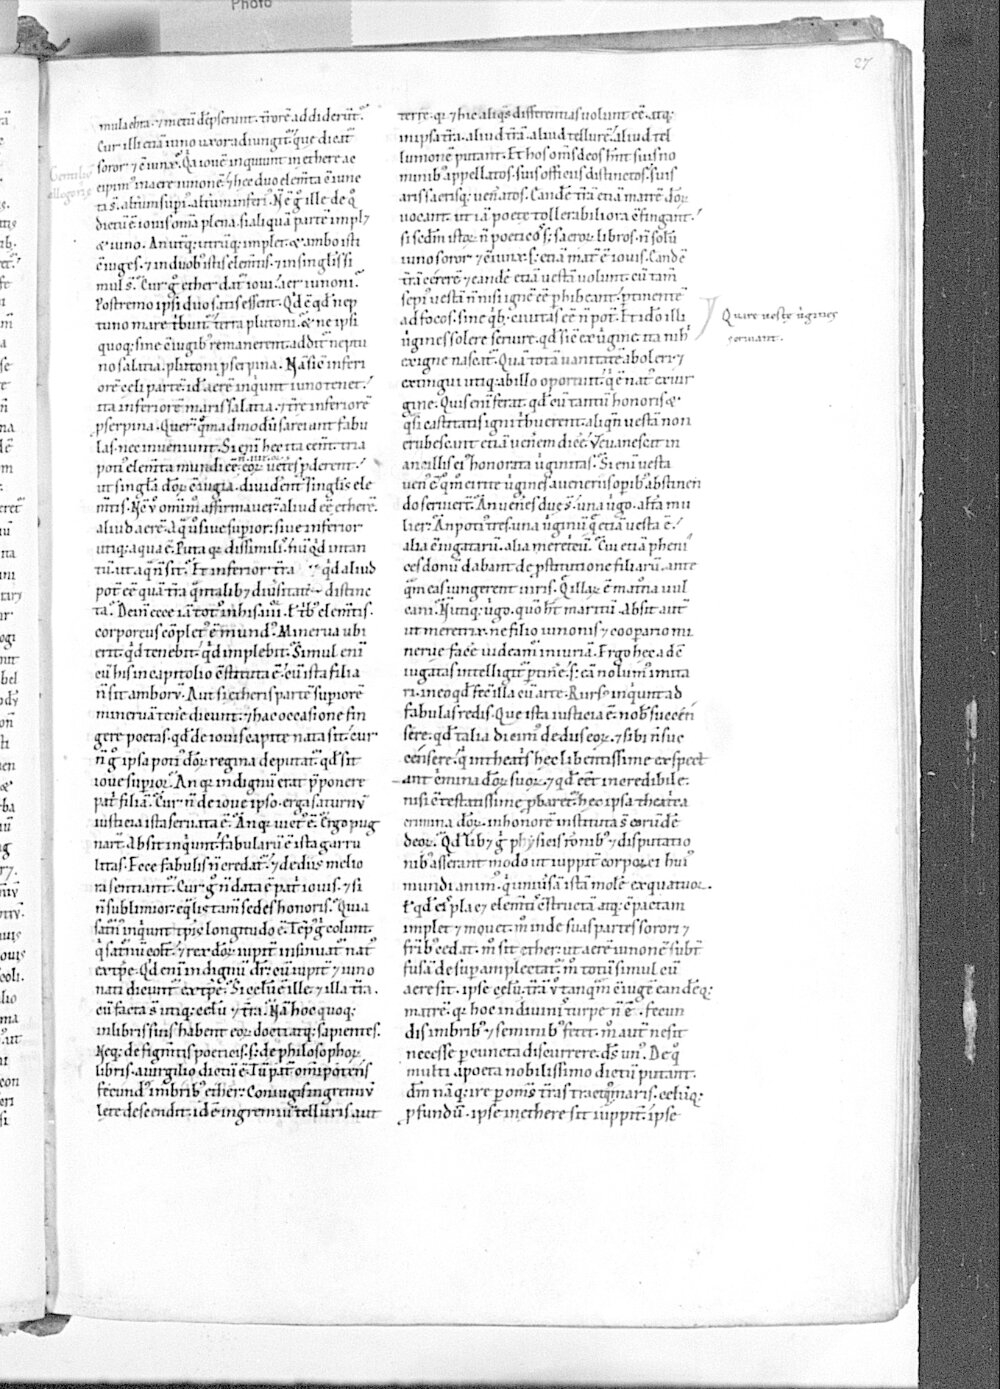 Photo
27
mulachra. ⁊ metū dēpserunt. t̄rorē addiderūt.
Cur illi etiā iuno uxor adiungit̄. que dicat̄
soror ⁊ c̄iunx. Qa ioue inquiunt in ethere ac
cipim' in aere iunonē. ⁊ hec duo elem̄ta c̄iunc
ta s̄. alterum supi'. alterum inferi'. N̄ ē g̊ ille de q̊
dictū ē iouis om̄ia plena. si aliquā partē impl&
& iuno. An ut̄q; ut̄ūq; implet. & ambo isti
c̄iuges. ⁊ in duob' istis elem̄tis. ⁊ in singlis si
mul s̄. Cur g̊ ether dat̄ ioui. aer iunoni.
Postremo ipsi duo satis essent. Qd ē qd nep
tuno mare t̄buit̄. terra plutoni. & ne ipsi
quoq; sine c̄iugib' remanerent. addit̄ neptu
no salatia. plutoni pserpina. Nā sic inferi
orē celi partē. id' aerē inquiunt iuno tenet.
ita inferiorē maris salatia. ⁊ t̄re inferiorē
pserpina. Querūt quēadmodū sarciant fabu
las. nec inueniunt. Si eni hec ita eent. tria
poti' elem̄ta mundi eē eoꝝ uetes pderent.
ut singla doꝝ c̄iugia. diuident̄ singlis ele
m̄tis. Nc̄ v omīm affirmauer̄. aliud eē etherē.
aliud aerē. Aq̄ ū siue supior. siue inferior
utiq; aqua ē. Puta qꝛ dissimilis. nū qd in tan
tū. ut aq̄ n̄ sit. Et inferior t̄ra ⁊ qd aliud
pot̄ eē quā t̄ra q̄ntalib& diuersitate distinc
ta. Dein ecce iā tot' in his .iiii. ł t'b' elem̄tis.
corporeus c̄plet' ē mund'. Minerua ubi
erit. qd tenebit. qd implebit. Simul eni
cū his in capitolio c̄stituta ē. cū ista filia
n̄ sit amborū. Aut si etheris partē supiorē
mineruā tenē dicunt. ⁊ hac occasione fin
gere poetas. qd de iouis capite nata sit. cur
n̄ g̊ ipsa poti' doꝝ regina deputat̄. qd sit
ioue supior. An qꝛ indignū erat pponere
pat̄ filiā. Cur n̄ de ioue ipso. erga saturnū
iusticia ista seruata ē. An qꝛ uict' ē. Ergo pug
nar̄. Absit inquiunt. fabularū ē ista garru
litas. Ecce fabulis n̄ credat̄. ⁊ de diis melio
ra sentiant̄. Cur g̊ n̄ data ē pat̄ iouis. ⁊ si
n̄ sublimior. eq̄lis tam̄ sedes honoris. Quia
sat̄n' inquiunt tp̄is longitudo ē. Tep' g̊ colunt.
q̊ sat̄nū colt̄. ⁊ rex doꝝ iupit̄ insinuat̄ nat'
ex tpe. Qd eni indignū dr̄. cū iupit̄ ⁊ iuno
nati dicunt̄ ex tpe. Si celū ē ille. ⁊ illa t̄ra.
cū facta s̄ utiq; celū ⁊ t̄ra. Nā hoc quoq;
in libris suis habent eoꝝ docti atq; sapientes.
Neq; de figm̄tis poeticis. s; de philosophoꝝ
libris. a uirgilio dictū ē. Tū pat̄ omipotens
fecund' imbrib' ether. Coniugis in gremiū
lete descendit. id' ē in gremiū telluris. aut
terre. qꝛ ⁊ hic aliqs differentias uolunt eē. atq;
in ipsa t̄ra. aliud t̄rā. aliud tellurē. aliud tel
lumonē putant. Et hos om̄s deos hn̄t suis no
minib' appellatos. suis officiis distinctos. suis
aris sacrisq; uen̄atos. Candē t̄rā etiā matrē doꝝ
uocant. ut iā poete tollerabiliora c̄fingant.
si sedm istoꝝ n̄ poeticos. s; sacroꝝ libros. n̄ solū
iuno soror ⁊ c̄iunx. s; etiā mat̄ ē iouis. Candē
t̄rā cererē ⁊ candē etiā uestā uolunt. cū tam̄
sepi' uestā n̄ nisi ignē eē phibeant. ptinentē
ad focos. sine qb; ciuitas eē n̄ pot̄. Et id'o illi
ūgines solere seruire. qd sic ex ūgine. ita nih'
ex igne nascat̄. Quā totā uanitatē aboleri ⁊
extingui utiq; ab illo oportuit. q' ē nat' ex uir
gine. Quis eni ferat. qd cū tantū honoris &
q̄si castitatis igni t'buerent. aliqn̄ uestā non
erubescant etiā uenerem dicē. Ut uanescat in
ancillis ei' honorata ūginitas. Si eni uesta
uen' ē. q̊m̄ ei rite ūgines a ueneriis opib' abstinen
do seruirēt. An uenes due s̄. una ūgo. alt̄a mu
lier. An poti' tres. una ūginū q̄ etiā uesta ē.
alia c̄iugatarū. alia meretricū. Cui etiā pheni
ces donū dabant de pstitutione filiarū. ante
q̄m eas iungerent uiris. Q̄ illaꝝ ē mat̄na uul
cani. N̄ utiq; ūgo. quō ht̄ maritū. Absit aut̄
ut meretrix. ne filio iunonis ⁊ coopario mi
nerue facē uideam̄ iniuriā. Ergo hec ad c̄
iugatas intelligit̄ ptinē. s; eā nolum' imita
ri. in eo qd fec̄ illa cū arte. Rurs' inquiunt ad
fabulas redis. Que ista iusticia ē. nob' succen
sere. qd talia dicim' de dus eoꝝ. ⁊ sibi n̄ suc
censere. q̊ in theatris hec libentissime exspect
ant crimina doꝝ suoꝝ. ⁊ qd eēt incredibile.
nisi c̄testatissime pbaret̄. hec ipsa theatrica
crimina doꝝ. in honorē instituta s̄ eorūdē
deoꝝ. Qd lib& g̊ physicis rōnib' ⁊ disputatio
nib' asserant. modo ut iuppit̄ corporei hui'
mundi anim'. q' uniūsā istā molē ex quatuor.
ł qd ei' plac& elem̄ti c̄structā atq; c̄pactam
implet ⁊ mouet. m̄ inde suas partes sorori ⁊
frīb' cedat. m̄ sit ether. ut aerē iunonē subt̄
fusā desup amplectat̄. m̄ totū simul cū
aere sit. ipse celū. t̄rā ū tanq̄m c̄iugē eandēq;
matrē. qꝛ hoc in diuinis turpe n̄ ē. fecun
dis imbrib' ⁊ seminib' fetet. m̄ aut̄ ne sit
necesse p cuncta discurrere. d̄s un'. De q̊
multi a poeta nobilissimo dictū putant.
dm̄ naq; ire p om̄s t̄ras tractq; maris. celūq;
pfundū. ipse in ethere sit iuppit̄. ipse
Gentiliū
allegorie
Quare ueste ūgines
seruiant.